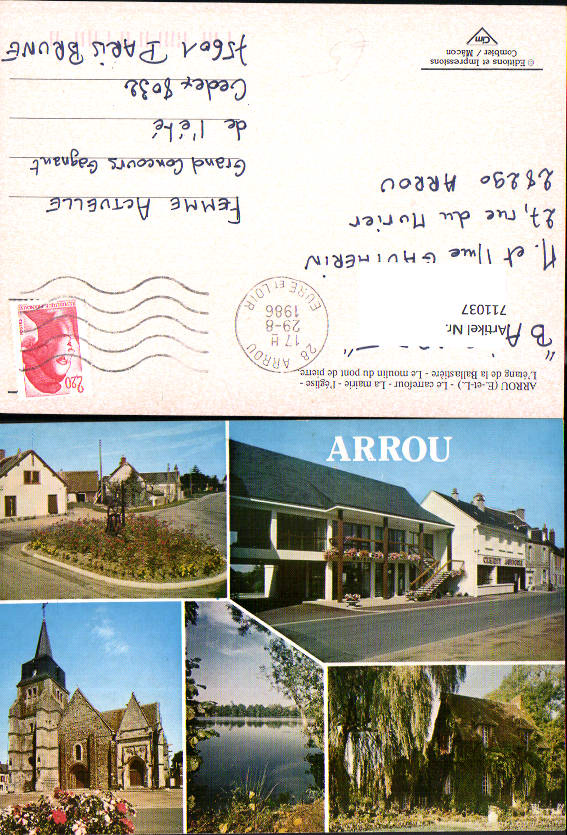 ARROU (E.-et-L.) - Le carrefour - La mairie - l'église -
L'étang de la Ballastière - Le moulin du pont de pierre
"BA
Artikel Nr.
711037
M. et Mme GHUIHERIN
27, rue du Murier
28290 ARROU
© Editions et Impressions
Combier / Mâcon
Cim
28 ARROU
17 H
29-8
1986
EURE ET LOIR
2,20
FEMME ACTUELLE
Grand Concours Gagnant
de l'été
Cedex 8032
75601 PARIS BRUNE
ARROU
CREDIT AGRICOLE